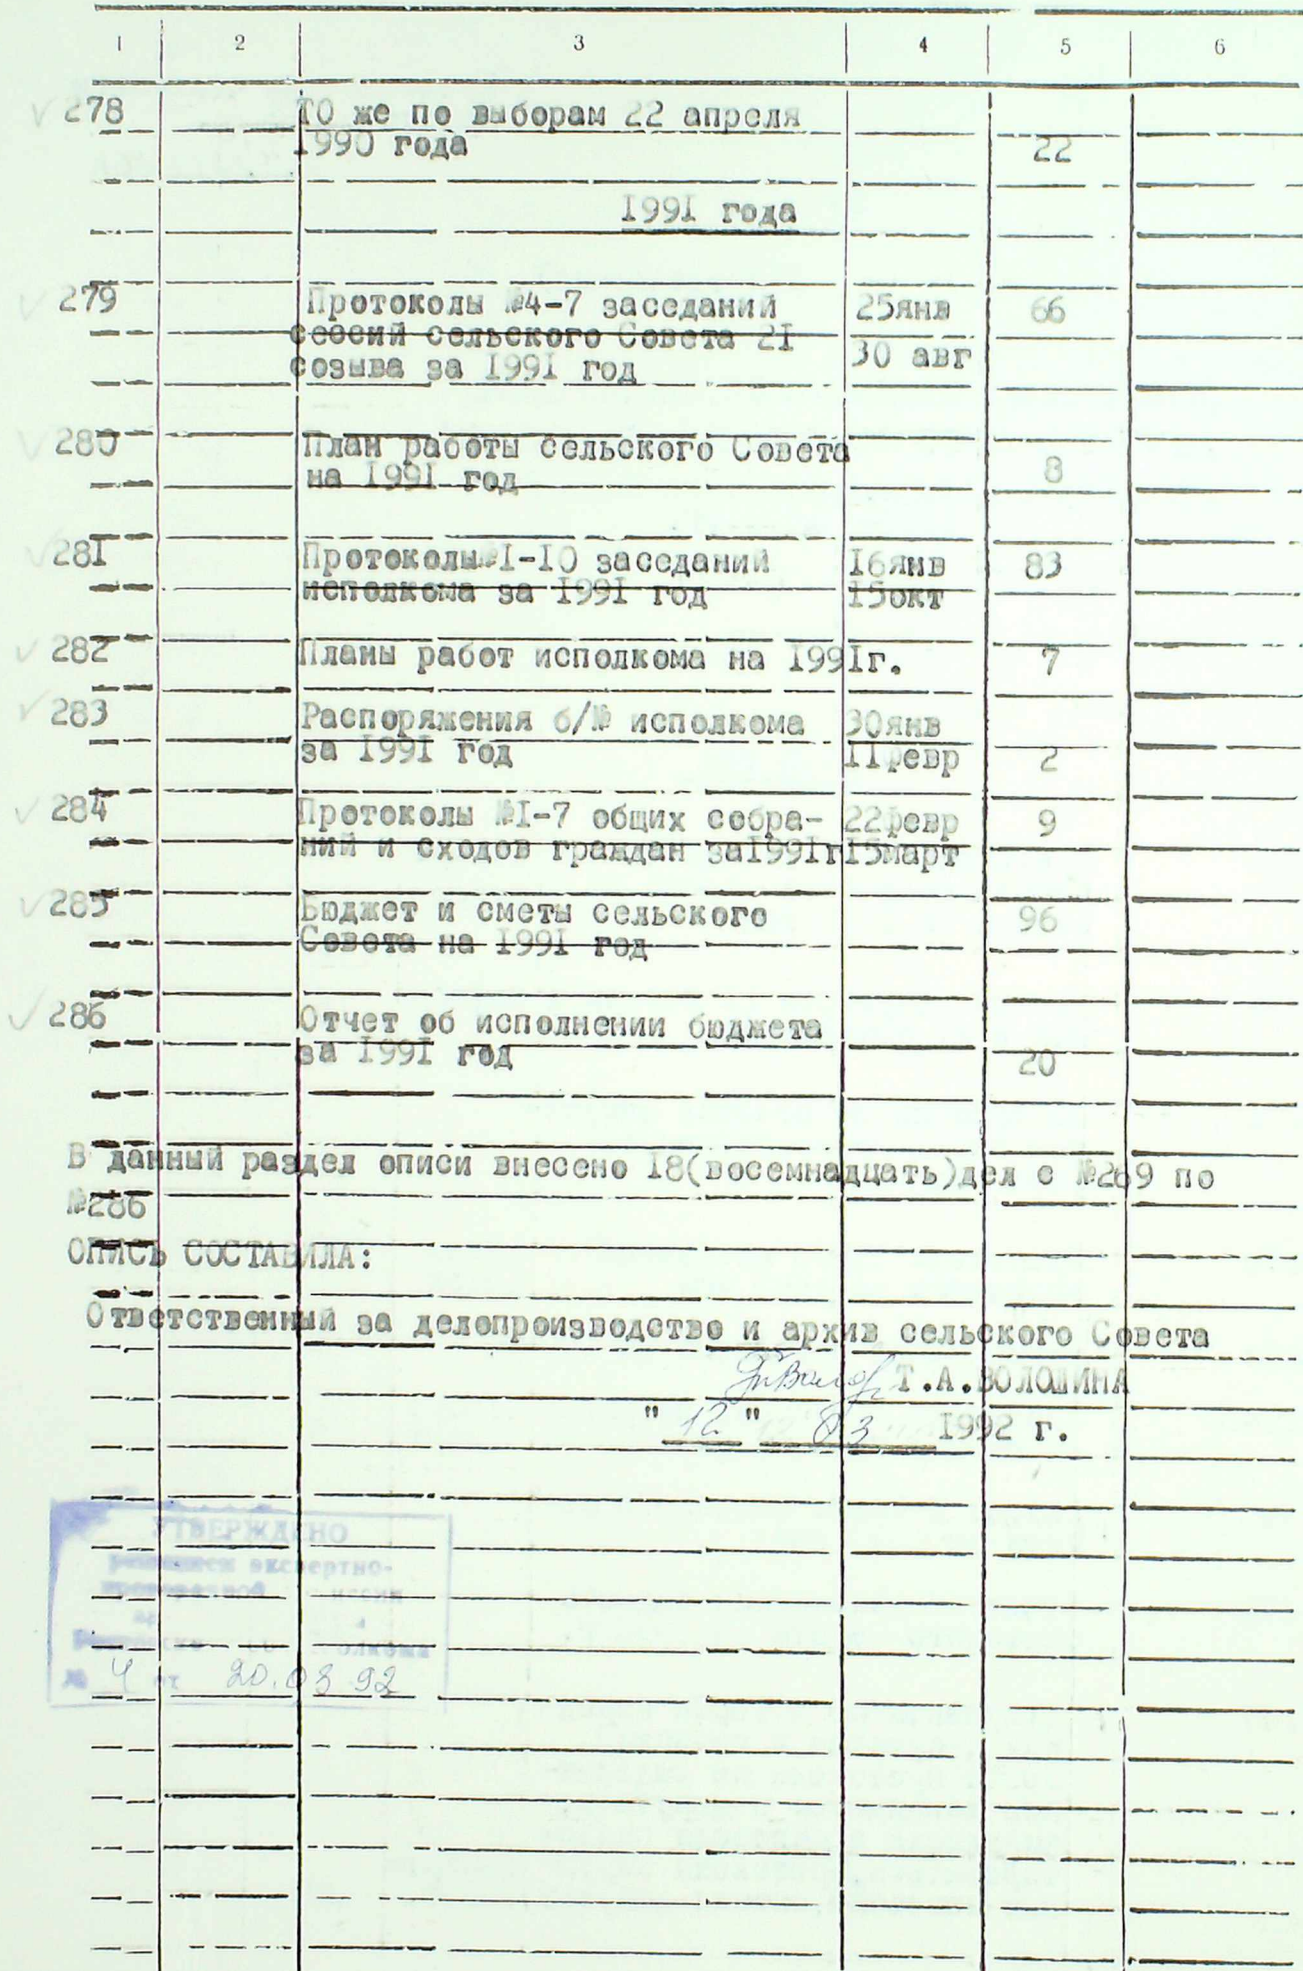 1 2 3 4 5 6
278 ТО же по выборам 22 апреля
1990 года 22
1991 года
279 Протоколы №4-7 заседаний 25янв 66
сессий сельского Совета 21
созыва за 1991 год 30 авг
280 План работы сельского Совета
на 1991 год 8
281 Протоколы№1-10 заседаний 16янв 83
исполкома за 1991 год 15окт
282 Планы работ исполкома на 1991г. 7
283 Распоряжения б/№ исполкома 30янв
за 1991 год 11февр 2
284 Протоколы №1-7 общих собра- 22февр 9
ний и сходов граждан за1991г 15март
285 Бюджет и сметы сельского 96
Совета на 1991 год
286 Отчет об исполнении бюджета
за 1991 год 20
В данный раздел описи внесено 18(восемнадцать)дел с №269 по
№286
ОПИСЬ СОСТАВИЛА:
Ответственный за делопроизводство и архив сельского Совета
Т.А.ВОЛОШИНА
" 12 " 03 1992 г.
УТВЕРЖДЕНО
решением экспертно-
№ 4 от 20.03 92